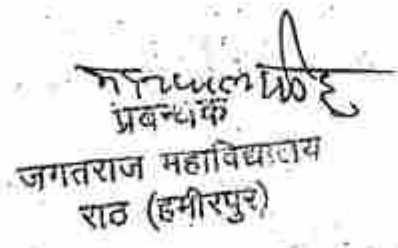 प्रबन्धक
जगतराज महाविद्यालय
राठ (हमीरपुर)